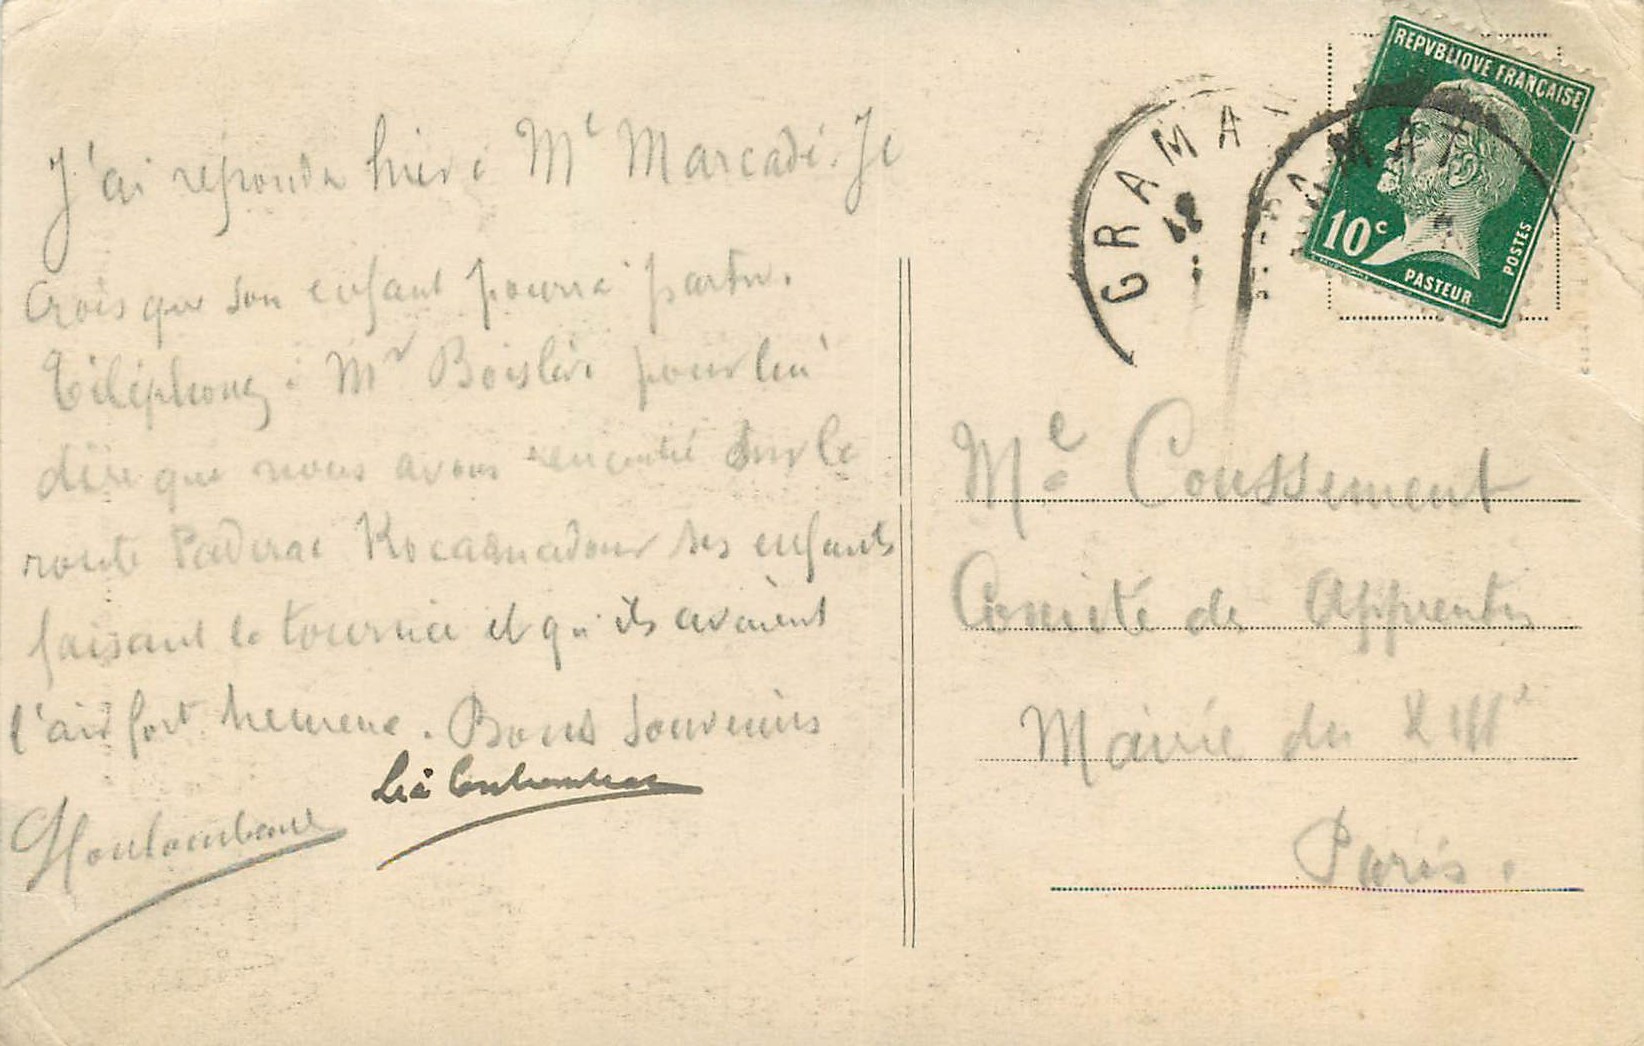 J'ai répondu hier à Me Marcadé. Je
crois que son enfant pourra partir.
Téléphonez à Mr Boisléri pour lui
dire que nous avons rencontré sur la
route Padirac Rocamadour ses enfants
faisant la tournée et qu'ils avaient
l'air fort heureux. Bons souvenirs
REPVBLIQVE FRANÇAISE
10c
PASTEUR
POSTES
GRAMAT
GRAMAT
Me Coussement
Comité des Apprentis
Mairie du
Paris.